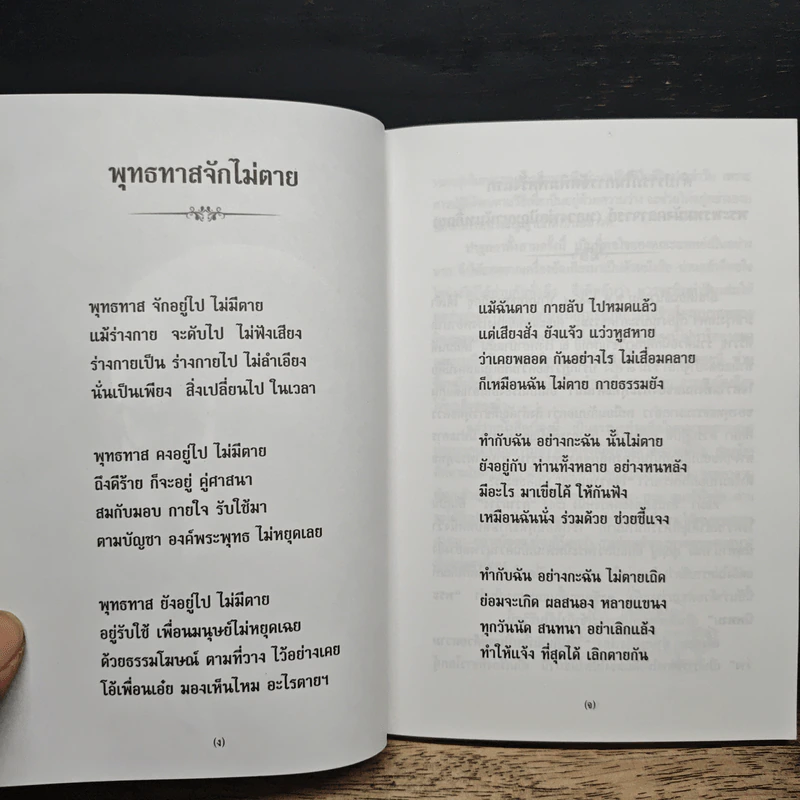 พุทธทาสจักไม่ตาย
พุทธทาส จักอยู่ไป ไม่มีตาย
แม้ร่างกาย จะดับไป ไม่ฟังเสียง
ร่างกายเป็น ร่างกายไป ไม่ลำเอียง
นั่นเป็นเพียง สิ่งเปลี่ยนไป ในเวลา
พุทธทาส คงอยู่ไป ไม่มีตาย
ถึงดีร้าย ก็จะอยู่ คู่ศาสนา
สมกับมอบ กายใจ รับใช้มา
ตามบัญชา องค์พระพุทธ ไม่หยุดเลย
พุทธทาส ยังอยู่ไป ไม่มีตาย
อยู่รับใช้ เพื่อนมนุษย์ไม่หยุดเฉย
ด้วยธรรมโฆษณ์ ตามที่วาง ไว้อย่างเคย
โอ้เพื่อนเอ๋ย มองเห็นไหม อะไรตายฯ
(ง)
แม้ฉันตาย กายลับ ไปหมดแล้ว
แต่เสียงสั่ง ยังแจ้ว แว่วหูสหาย
ว่าเคยพลอด กันอย่างไร ไม่เสื่อมคลาย
ก็เหมือนฉัน ไม่ตาย กายธรรมยัง
ทำกับฉัน อย่างกะฉัน นั้นไม่ตาย
ยังอยู่กับ ท่านทั้งหลาย อย่างหนหลัง
มีอะไร มาเขี่ยไค้ ให้กันฟัง
เหมือนฉันนั่ง ร่วมด้วย ช่วยชี้แจง
ทำกับฉัน อย่างกะฉัน ไม่ตายเถิด
ย่อมจะเกิด ผลสนอง หลายแขนง
ทุกวันนัด สนทนา อย่าเลิกแล้ง
ทำให้แจ้ง ที่สุดได้ เลิกตายกัน
(จ)